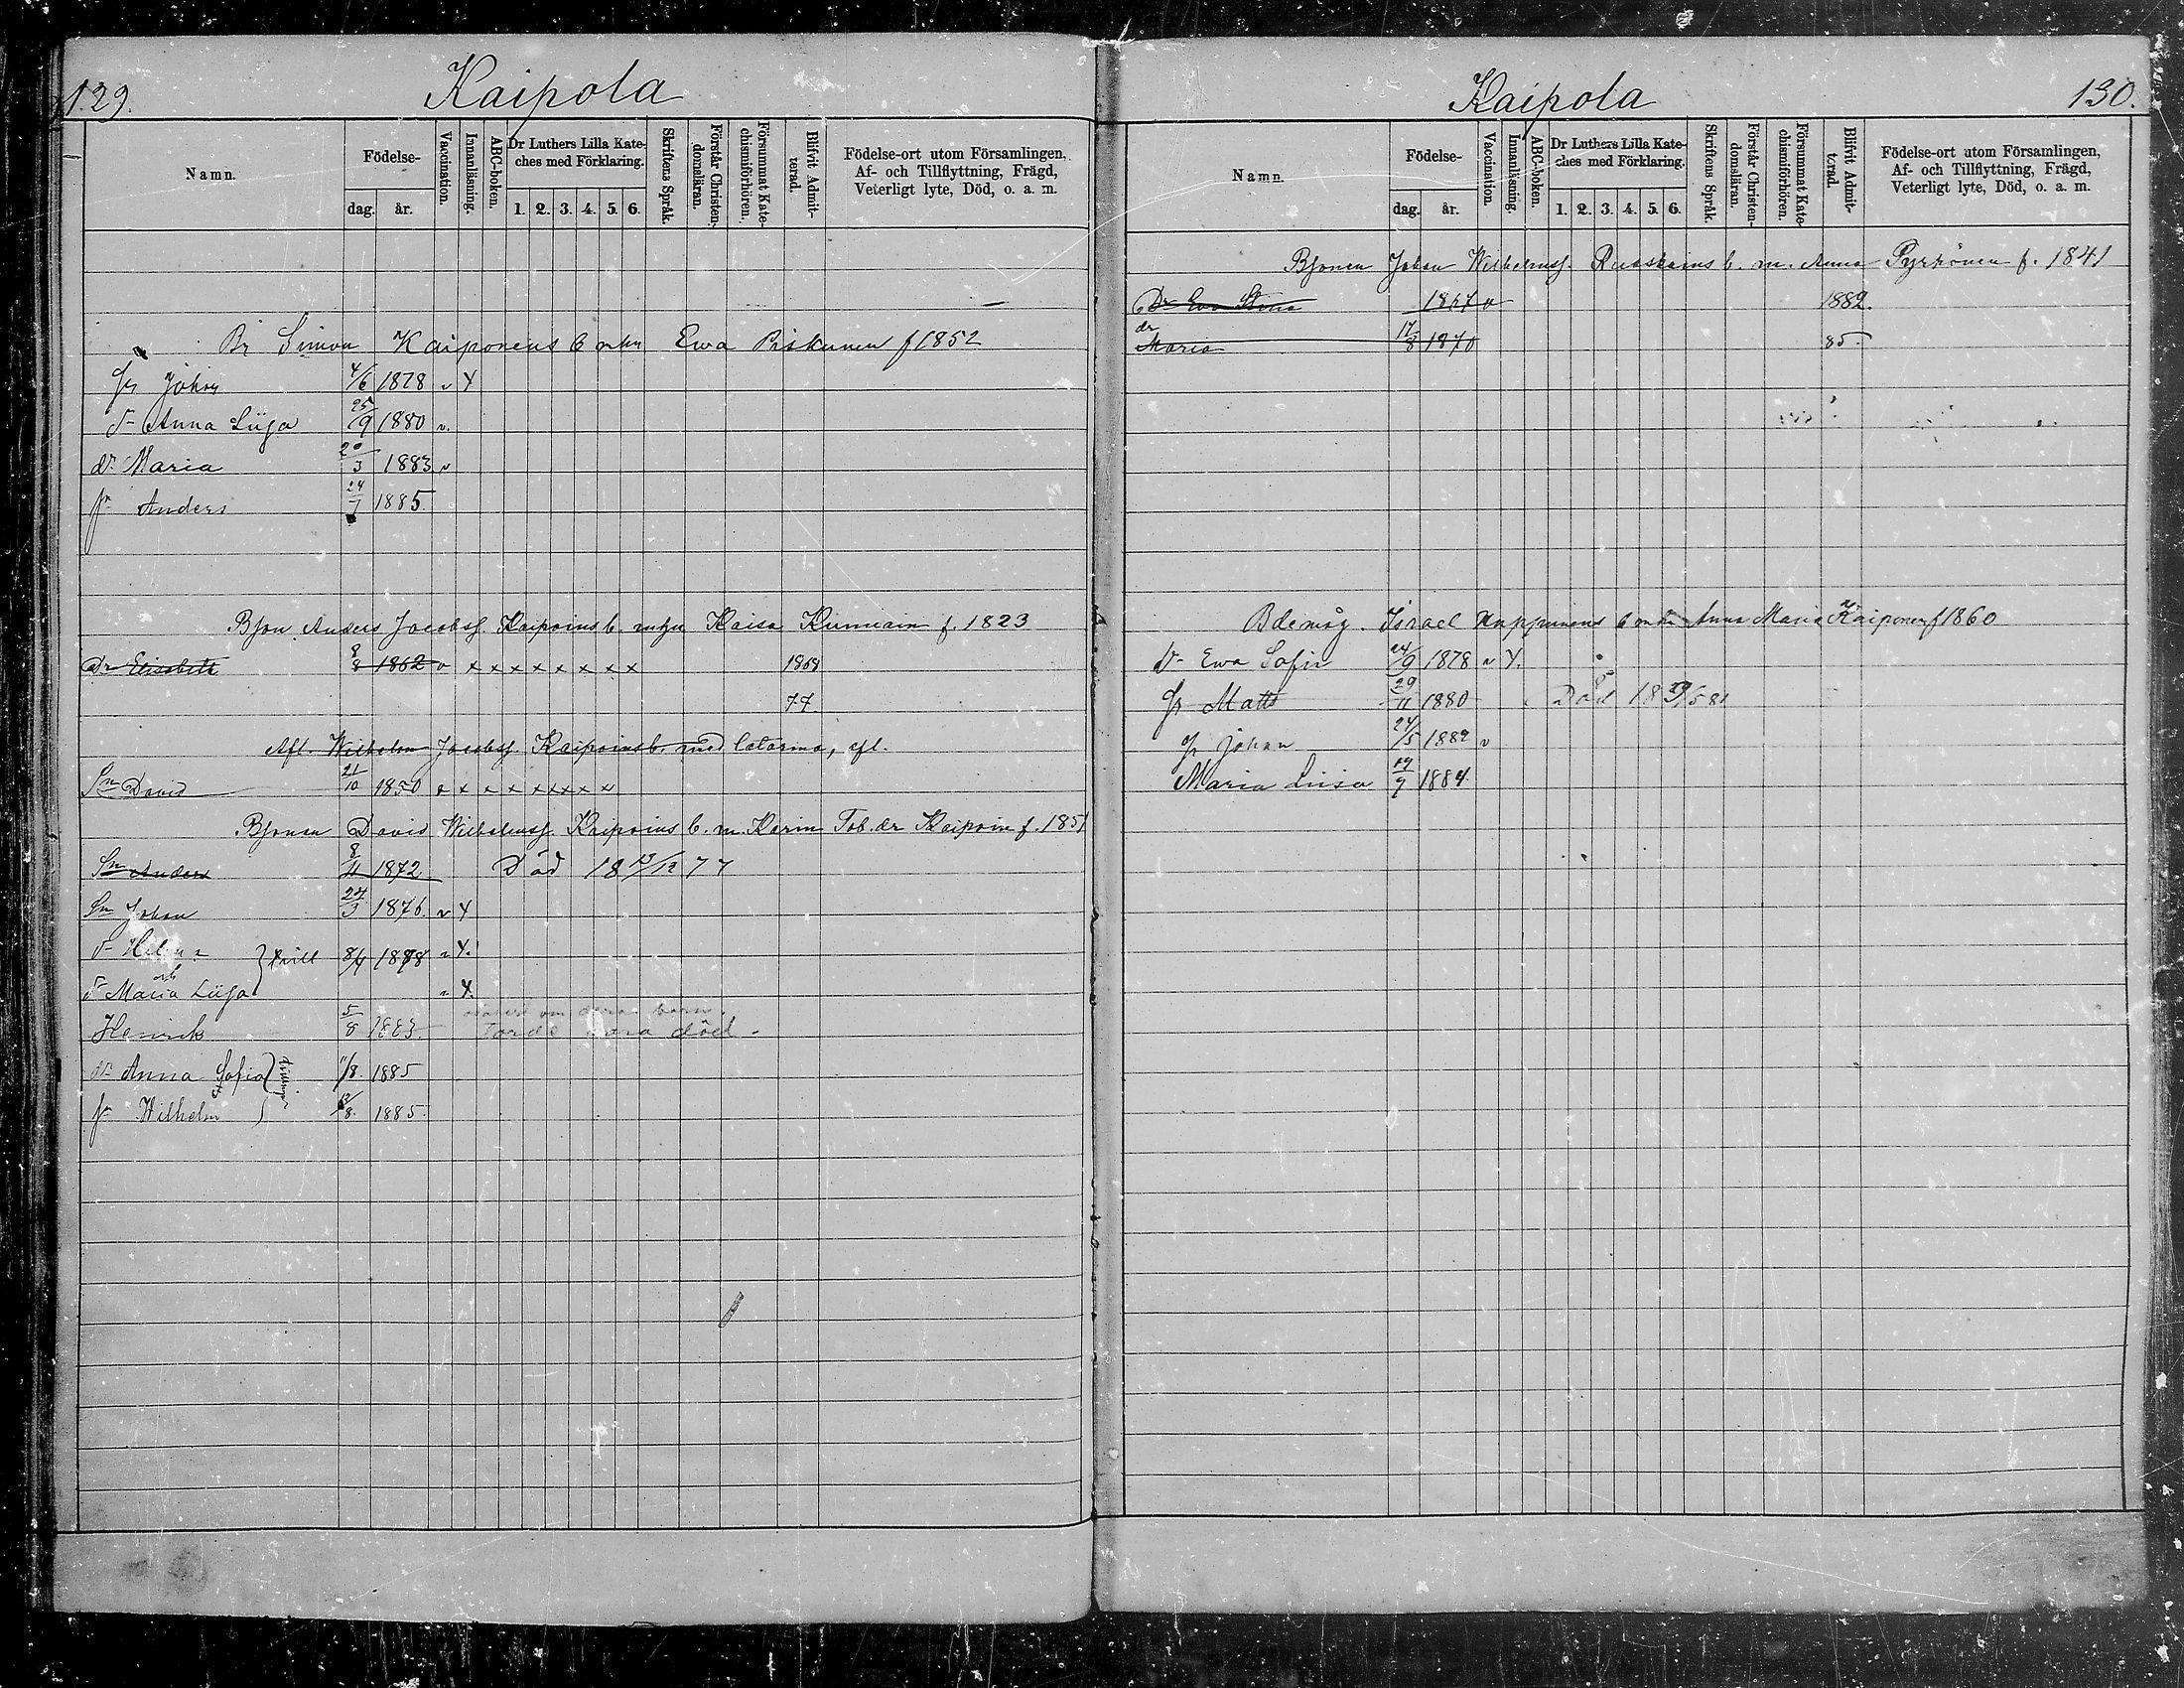 129.
Kaipola
Namn.
Födelse-
dag.
år.
Vaccination.
Innanläsning.
ABC-boken.
Dr Luthers Lilla Kate-
ches med Förklaring.
1. 2. 3. 4. 5. 6.
Skriftens Språk.
Förstår Christen-
domsläran.
Försummat Kate-
chismiförhören.
Blifvit Admit-
terad.
Födelse-ort utom Församlingen,
Af- och Tillflyttning, Frägd,
Veterligt lyte, Död, o. a. m.
Br Simon Kaiponens b m hu Ewa Piskunen f 1852
Johan 4/6 1878 v Y
dr Anna Liisa 25/9 1880 v.
dr Maria 20/3 1883 v
Anders 24/7 1885.
Bjon Anders Jacobsf. Kaipoins b. m hu Kaisa f. 1823
Dr Elisabeth 8/8 1862 v x x x x x x x x 1869
77
Afl. Wilhelm Jacobsf. Kaipoins b. med Catarina, afl.
Sn David 21/10 1850
Bjonen David Wilhelmsf. Kaipoins b. m. Karin Tob. dr Kaipoin f. 1851
Sn Anders 8/4 1872 Död 18 13/12 77
Sn Johan 24/3 1876. v Y
dr Helena 8/4 1878 v Y.
och
dr Maria Liisa v Y.
Henrik 5/8 1883. Torde vara död.
dr Anna Sofia 11/8. 1885
Wilhelm 12/8. 1885.
Kaipola
130.
Namn.
Födelse-
dag.
år.
Vaccination.
Innanläsning.
ABC-boken.
Dr Luthers Lilla Kate-
ches med Förklaring.
1. 2. 3. 4. 5. 6.
Skriftens Språk.
Förstår Christen-
domsläran.
Försummat Kate-
chismiförhören.
Blifvit Admit-
terad.
Födelse-ort utom Församlingen,
Af- och Tillflyttning, Frägd,
Veterligt lyte, Död, o. a. m.
Bjonen Johan Wilhelmsf. Ruoskains b. m. Anna Pyrhönen f. 1841
Dr Eva Stina 1867 v 1882.
dr
Maria 17/8 1870 85.
Bdemåg. Israel b m hu Anna Maria Kaiponen f 1860
dr Ewa Sofia 24/9 1878 v Y.
Matts 29/11 1880 Död
Johan 24/5 1882 v
Maria Liisa 19/7 1884.